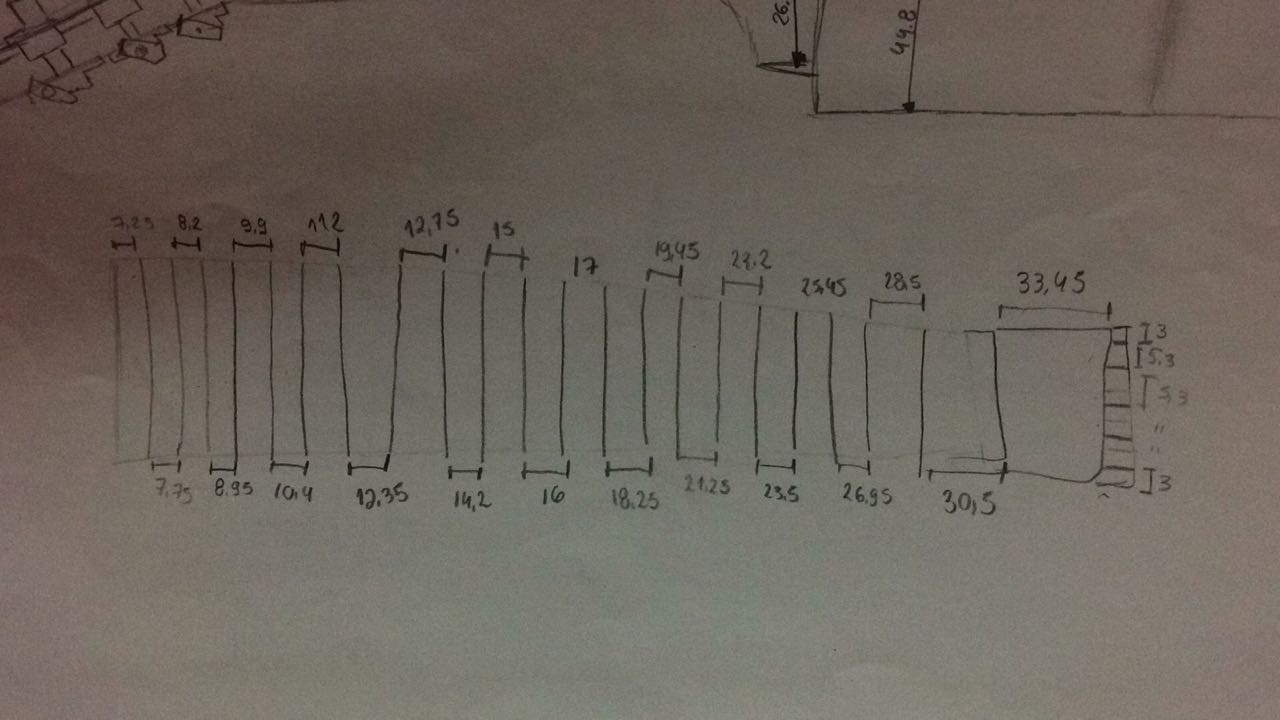 26.
44.8
7,25 8,2 9,9 11,2 12,75 15 17 19,45 22,2 25,45 28,5 33,45
3
5,3
5,3
"
"
3
7,75 8,95 10,4 12,35 14,2 16 18,25 21,25 23,5 26,95 30,5